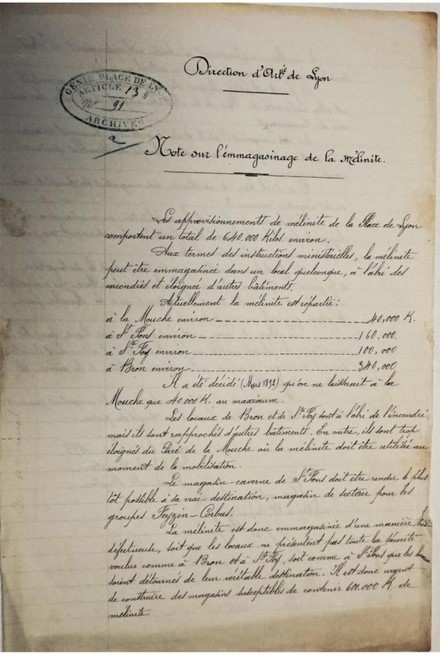 Direction d'Artie de Lyon
GÉNIE PLACE DE LYON
ARTICLE 13
91
ARCHIVES
a
Note sur l'emmagasinage de la mélinite.
Les approvisionnements de mélinite de la Place de Lyon
comportent un total de 640,000 Kilos environ.
Aux termes des instructions ministérielles, la mélinite
peut être emmagasinée dans un local quelconque, à l'abri des
incendies et éloignée d'autres bâtiments.
Actuellement la mélinite est répartie:
à la Mouche environ 40,000 K.
à St Fons environ 160,000.
à Ste Foy environ 100,000
à Bron environ 340,000
Il a été décidé (Mars 1892) qu'on ne laisserait à la
Mouche que 40.000 K au maximum.
Les locaux de Bron et de Ste Foy sont à l'abri de l'incendie,
mais ils sont rapprochés d'autres bâtiments. En outre, ils sont trop
éloignés du Parc de la Mouche où la mélinite doit être utilisée au
moment de la mobilisation.
Le magasin-caverne de St Fons doit être rendu le plus
tôt possible à sa vraie destination, magasin de secteur pour les
groupes Feyzin-Corbas.
La mélinite est donc emmagasinée d'une manière
défectueuse, soit que les locaux ne présentent pas toute la sécurité
voulue comme à Bron et à Ste Foy, soit comme à St Fons que les
soient détournés de leur véritable destination. Il est donc urgent
de construire des magasins susceptibles de contenir 600.000 K de
mélinite